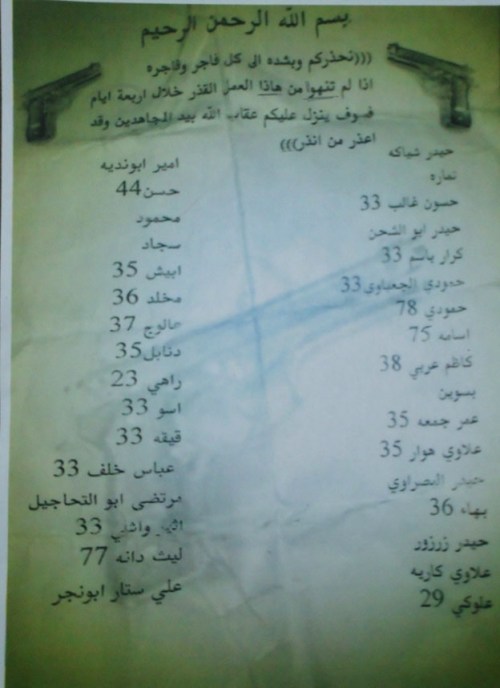 بسم الله الرحمن الرحيم
(((نحذركم وبشده الى كل فاجر وفاجره
اذا لم تنهوا من هاذا العمل القذر خلال اربعة ايام
فسوف ينزل عليكم عقاب الله بيد المجاهدين وقد
اعذر من انذر)))
حيدر شباكه
نماره
حسون غالب 33
حيدر ابو الشحن
كرار باسم 33
حمودي 33
حمودي 78
اسامه 75
كاظم عربي 38
بسوين
عمر جمعه 35
علاوي هوار 35
حيدر البصراوي
بهاء 36
حيدر زرزور
علاوي كاريه
علوكي 29
امير ابونديه
حسن 44
محمود
سجاد
ابيش 35
مخلد 36
37
دنابل 35
راهي 23
اسو 33
قيقه 33
عباس خلف 33
مرتضى ابو التحاجيل
33
ليث دانه 77
علي ستار ابونجر